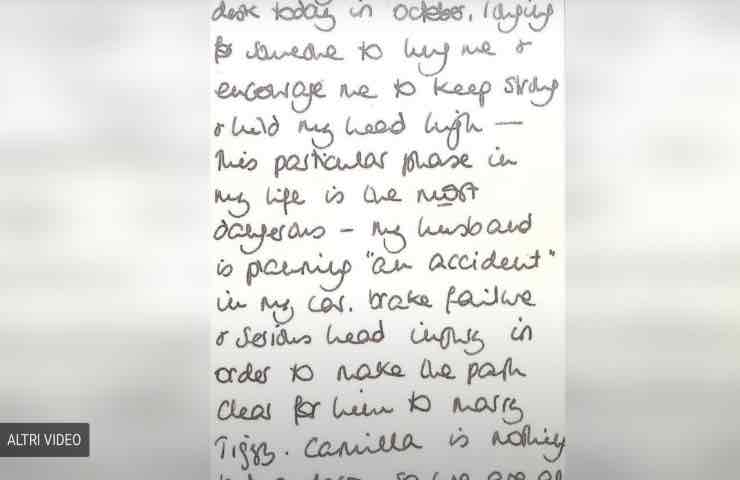 desk today in october, longing
for someone to hug me &
encourage me to keep strong
& hold my head high —
This particular phase in
my life is the most
dangerous – my husband
is planning "an accident"
in my car. brake failure
& serious head injury in
order to make the path
clear for him to marry
Tiggy. Camilla is nothing
ALTRI VIDEO